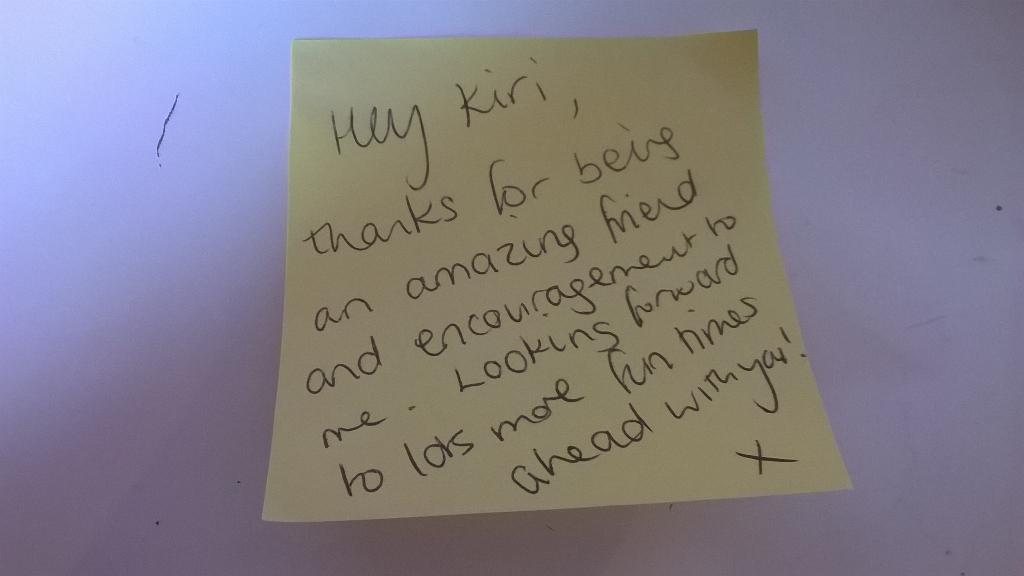 Hey Kiri,
thanks for being
an amazing friend
and encouragement to
me. Looking forward
to lots more fun times
ahead with you!
x